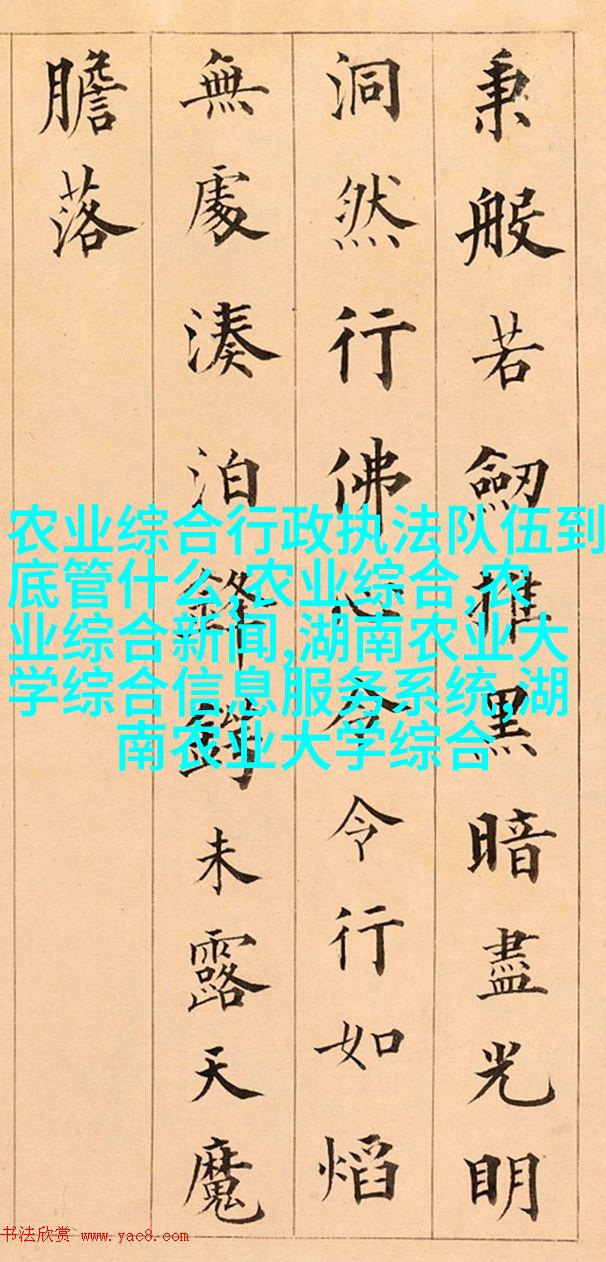 秉般若劔摧黑暗盡光明
洞然行佛心令令行如熖
無處湊泊鋒鍔未露天魔
膽落
农业综合行政执法队伍到
底管什么,农业综合,农
业综合新闻,湖南农业大
学综合信息服务系统,湖
南农业大学综合
书法欣赏 www.yac8.com